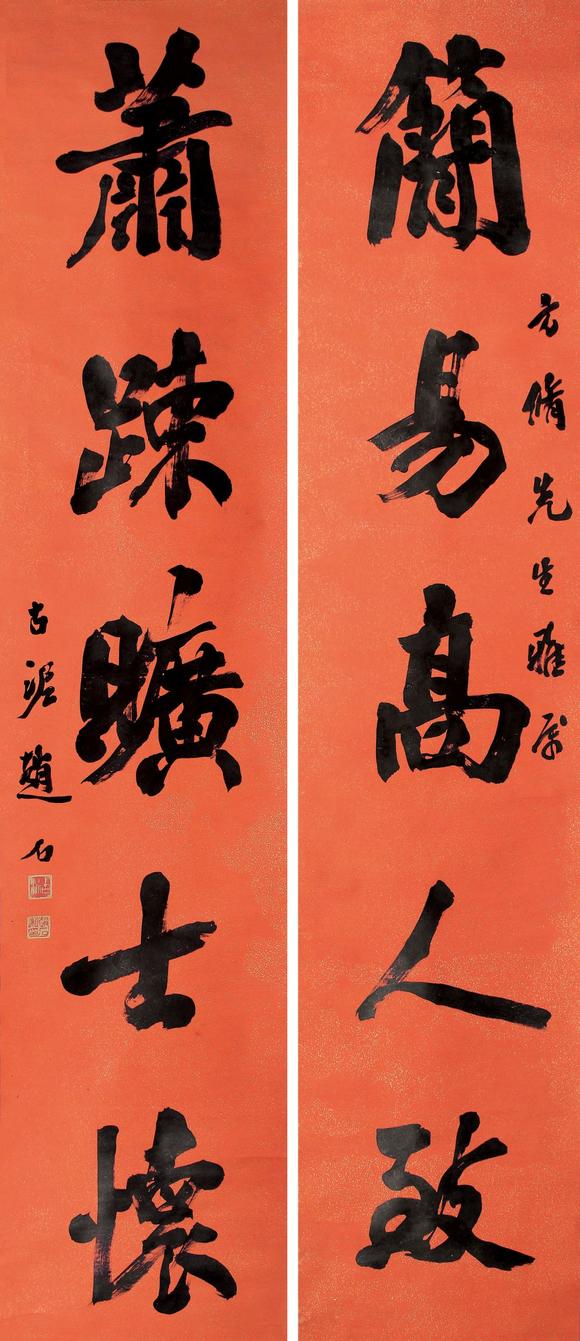 簡易髙人致
脩先生雅屬
蕭踈曠士懷
古泥趙石